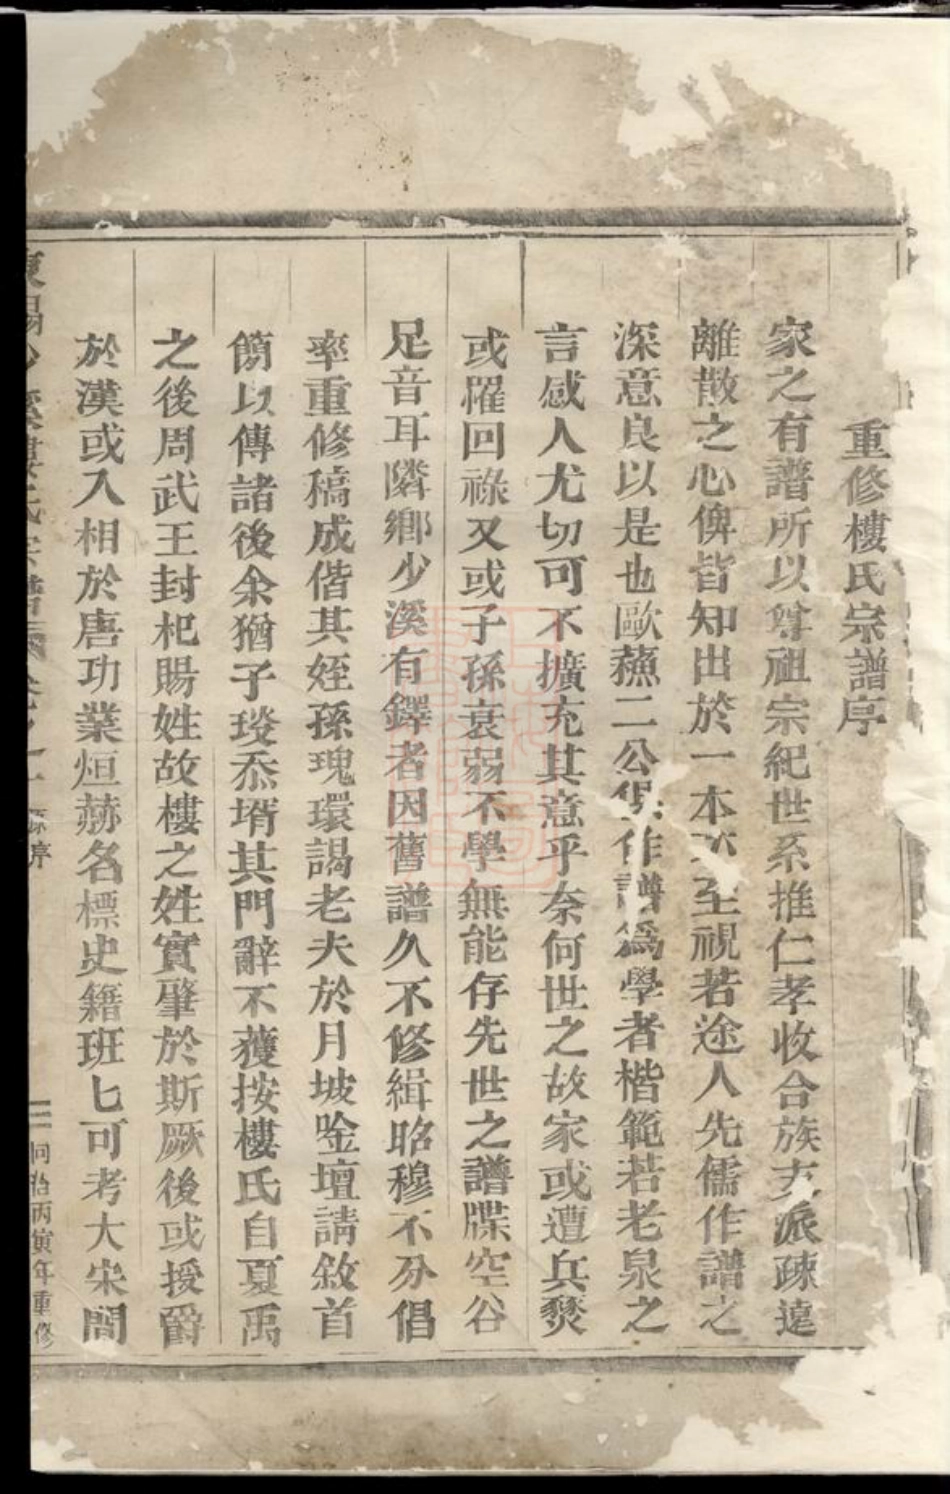 重修樓氏宗譜序
家之有譜所以尊祖宗紀世系推仁孝收合族支派疎遠
離散之心俾皆知出於一本不至視若途人先儒作譜之
深意良以是也歐蘓二公俱作譜爲學者楷範若老泉之
言感人尤切可不擴充其意乎奈何世之故家或遭兵燹
或罹回祿又或子孫衰弱不學無能存先世之譜牒空谷
足音耳隣鄉少溪有鐸者因舊譜久不修緝昭穆不分倡
率重修稿成偕其姪孫瑰環謁老夫於月坡唫壇請敘首
簡以傳諸後余猶子琰忝壻其門辭不獲按樓氏自夏禹
之後周武王封杞賜姓故樓之姓實肇於斯厥後或授爵
於漢或入相於唐功業烜赫名標史籍班匕可考大宋間
東陽少溪樓氏宗譜 卷之一 序 二 同治丙寅年重修